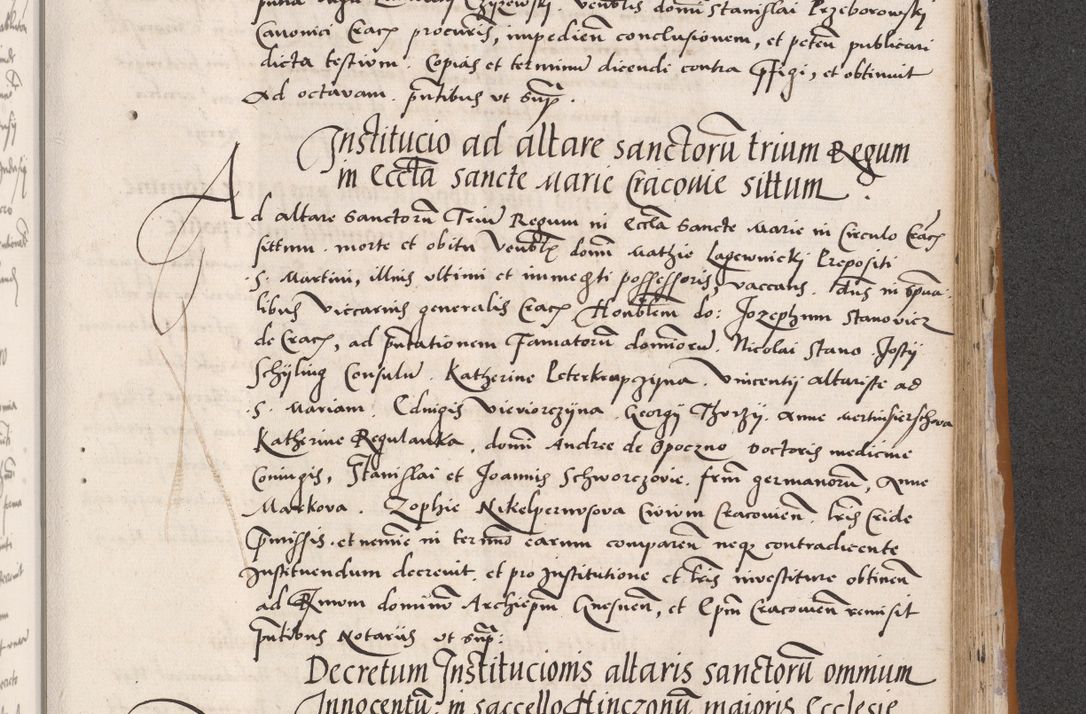 Canonici Crac procuris, impedien conclusionem, et peten publicari
dicta testium. Copias et terminu dicendi contra pffigi, et obtinuit
Ad octavam. pntibus ut supra.
Institucio ad altare sanctoru trium Regum
in Eccta sancte Marie Cracovie sittum.
Ad altare Sanctoru Triu Regum in Eccla Sancte Marie in Circulo Crac
sittum. morte et obitu Venblis domi Mathie Lagewnicky Prepositi
S. Martini, illius ultimi et immedti possessoris, vaccans. dns in spua-
libus Viccarius generalis Crac Honblem do: Jozephum Stanovicz
de Crac, ad pntationem Famatoru dominoru. Nicolai Stano Josty
Schyling Consulu. Katherine Peterkrupczyna. Vincentij altariste ad
S. Mariam. Edvigis Vieviorczyna. Georgij Thorzy. Anne Mertinsierschova
Katherine Regulanka, domi Andree de Opoczno Doctoris medicine
Coniugis, Stanislai et Joannis Schworczovie. frm germanoru, Anne
Markova. Zophie Nikelpernusova Civium Cracovien. tris Cride
pmissis. et nemie in termino earum comparen neq contradicente
Instituendum decrevit. et pro Institutione et tris investiture obtinen
ad Rmum dominu Archiepm Gnesnen, et Epm Cracovien remisit
pntibus Notariis ut supra:
Decretum Institucionis altaris sanctoru omnium
Innocentu in sacello Hinczonis maioris Ecclesie